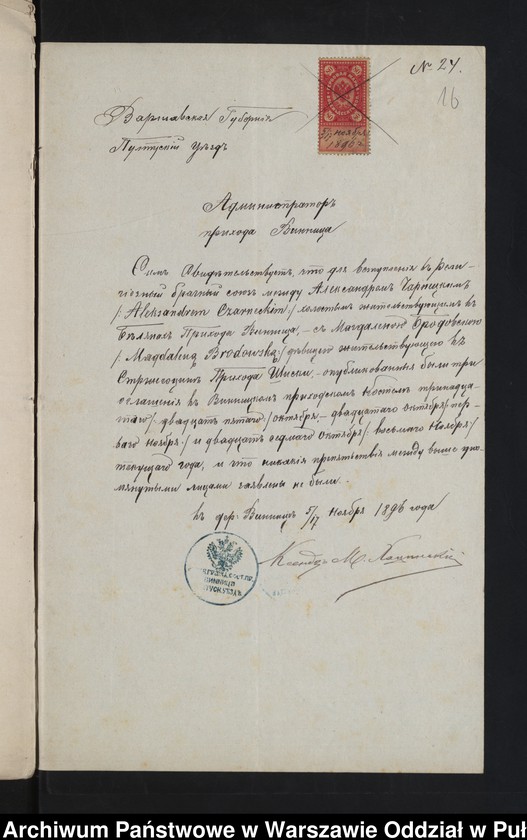 № 24.
16
5/17 ноября
1896 г.
Варшавская Губернія
Пултускій Уѣздъ
Администраторъ
прихода Винница
Симъ Свидѣтельствуетъ, что для вступленія въ рели-
гіозный брачный союз между Александромъ Чарнецкимъ
/: Aleksandrem Czarneckim :/ холостымъ жительствующимъ въ
Прихода Винница, - съ Магдаленою Бродовскою
/: Magdaleną Brodowską :/ дѣвицею жительствующею въ
Стржегоцинѣ Прихода - опубликованы были три
оглашенія въ Винницкомъ приходскомъ Костелѣ тринадца-
таго /: двадцать пятаго :/ октября, - двадцатаго октября /: пер-
ваго ноября :/ и двадцать седмаго октября /: восьмаго ноября :/
текущаго года, и что никакія препятствія между выше упо-
мянутыми лицами заявлены не были. -
въ дер. Винницѣ 5/17 Ноября 1896 года
Ксендзъ М.
ВИННИЦА
Archiwum Państwowe w Warszawie Oddział w Puł